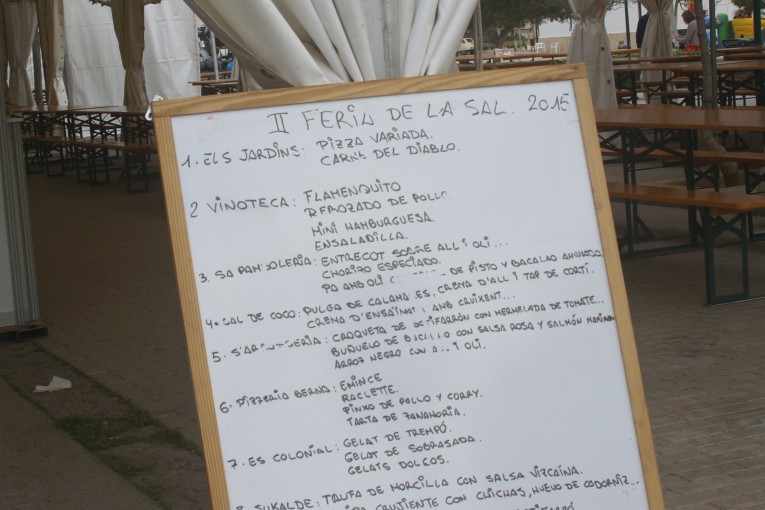 II FERIA DE LA SAL. 2015
1. ELS JARDINS: PIZZA VARIADA.
CARNE DEL DIABLO.
2 VINOTECA: FLAMENQUITO
REBOZADO DE POLLO
MINI HAMBURGUESA.
ENSALADILLA.
3. SA : ENTRECOT SOBRE ALL I OLI...
CHORIZO ESPECIADO.
PA AMB OLI DE PISTO Y BACALAO AHUMADO.
4. SAL DE COCO: PULGA DE CREMA D'ALL I TAP DE CORTÍ.
CREMA AMB CRUIXENT...
5. CROQUETA DE CON MERMELADA DE TOMATE...
BUÑUELO DE CON SALSA ROSA Y SALMÓN
ARROZ NEGRO CON OLI.
6. PIZZERIA BERNA: EMINCE
RACLETTE.
PINXO DE POLLO Y CURRY.
TARTA DE ZANAHORIA.
7. ES COLONIAL: GELAT DE TREMPÓ.
GELAT DE SOBRASADA.
GELATS DOLÇOS.
SUKALDE: TRUFA DE MORCILLA CON SALSA VIZCAINA.
CRUJIENTE CON CHICHAS, HUEVO DE CODORNIZ...